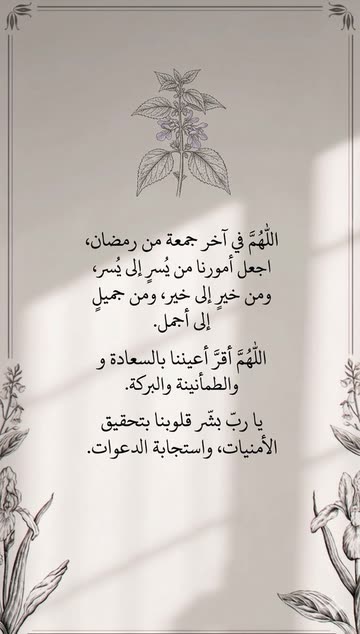 اللّٰهُمَّ في آخر جمعة من رمضان،
اجعل أمورنا من يُسرٍ إلى يُسر،
ومن خيرٍ إلى خير، ومن جميلٍ
إلى أجمل.
اللّٰهُمَّ أقرَّ أعيننا بالسعادة و
والطمأنينة والبركة.
يا ربّ بشّر قلوبنا بتحقيق
الأمنيات، واستجابة الدعوات.